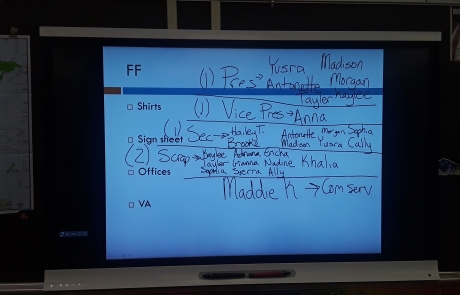 FF
Yusra Madison
(1) Pres→ Antonette Morgan
Tayler Kaylee
Shirts
(1) Vice Pres→ Anna
(1) Sec→ Hailey T. Antonette Morgan Sophia
Sign sheet Brooke Madison Yusra Cally
(2) Scrap→ Kaylee Adriana Ericha
Tayler Gianna Nadine Khalia
Offices Sophia Sierra Ally
Maddie K → Com serv
VA